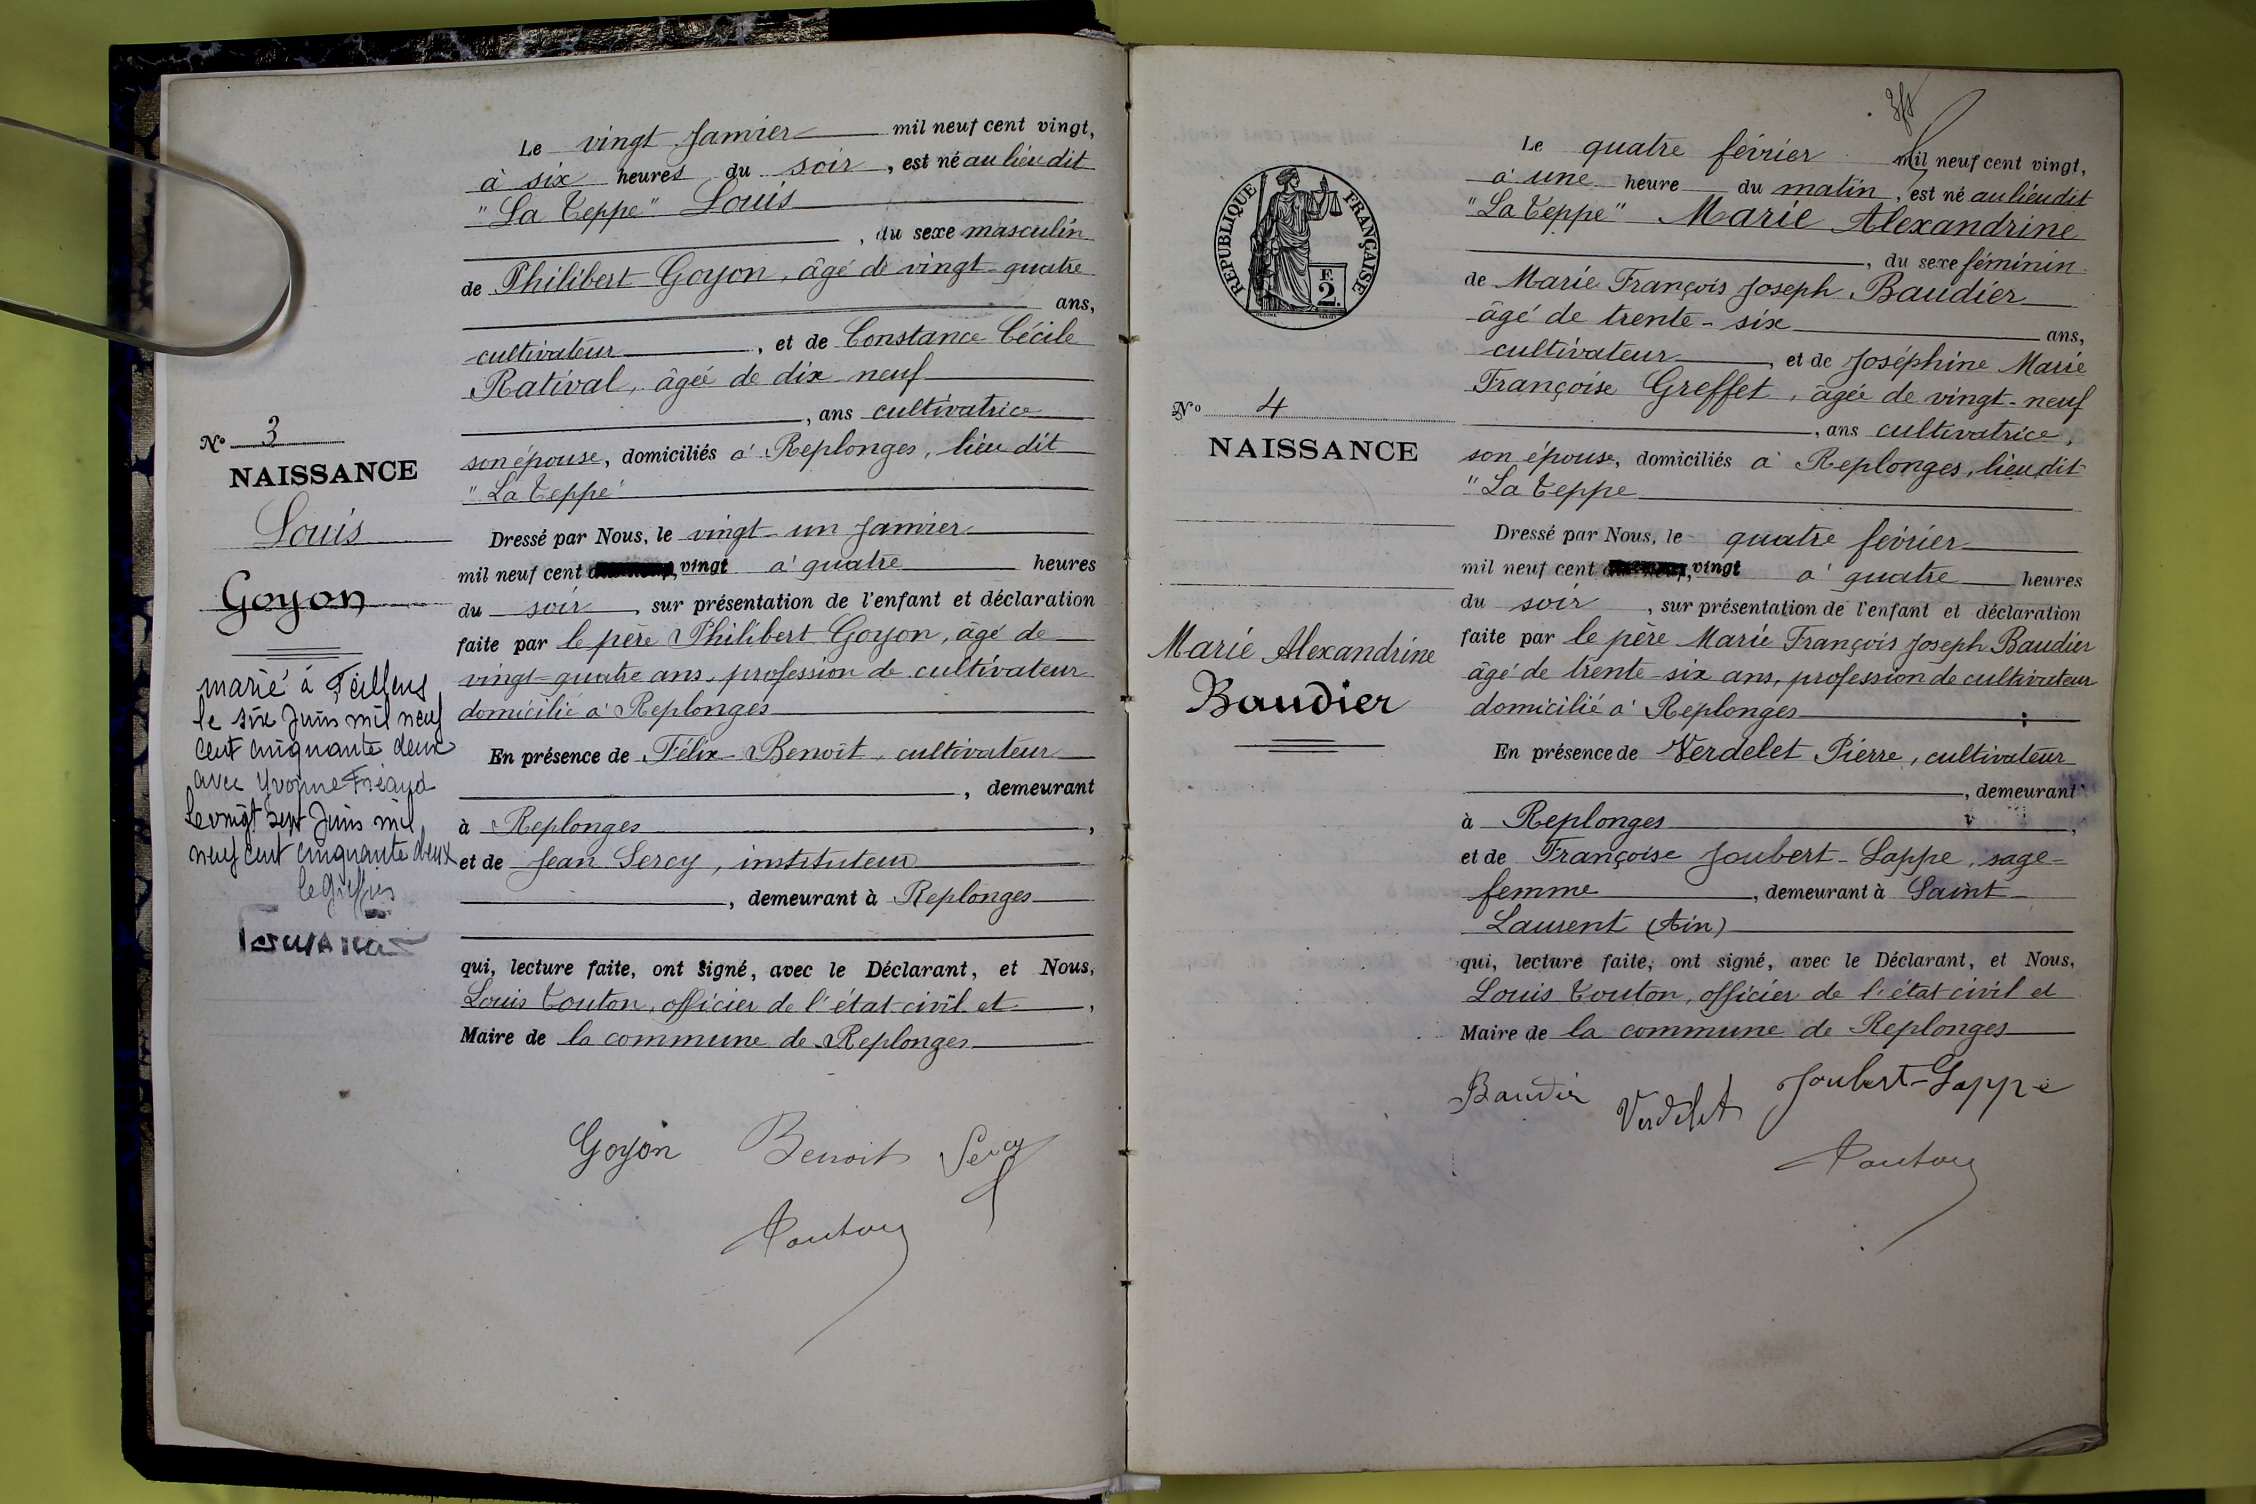 Le vingt Janvier mil neuf cent vingt,
à six heures du soir, est né au lieu dit
"La Teppe" Louis
, du sexe masculin
de Philibert Goyon, âgé de vingt-quatre
ans,
cultivateur, et de Constance Cécile
Ratival, âgée de dix-neuf
, ans cultivatrice
son épouse, domiciliés à Replonges, lieu dit
"La Teppe"
Dressé par Nous, le vingt-un Janvier
mil neuf cent vingt à quatre heures
du soir, sur présentation de l'enfant et déclaration
faite par le père Philibert Goyon, âgé de
vingt-quatre ans, profession de cultivateur
domicilié à Replonges
En présence de Félix Benoit, cultivateur
, demeurant
à Replonges,
et de Jean Sercy, instituteur
, demeurant à Replonges
qui, lecture faite, ont signé, avec le Déclarant, et Nous,
Louis Touton, officier de l'état-civil et,
Maire de la commune de Replonges
Goyon Benoit Sercy
Touton
No 3
NAISSANCE
Louis
Goyon
marié à Feillens
le six Juin mil neuf
cent cinquante deux
avec Yvonne Fréaud
Le vingt sept Juin mil
neuf cent cinquante deux
le Greffier
REPUBLIQUE FRANÇAISE
F.
2.
No 4
NAISSANCE
Marie Alexandrine
Baudier
Le quatre février mil neuf cent vingt,
à une heure du matin, est né au lieu dit
"La Teppe" Marie Alexandrine
, du sexe féminin
de Marie François Joseph Baudier
âgé de trente-six ans,
cultivateur, et de Joséphine Marie
Françoise Greffet, âgée de vingt-neuf
, ans cultivatrice,
son épouse, domiciliés à Replonges, lieu dit
"La Teppe
Dressé par Nous, le quatre février
mil neuf cent vingt à quatre heures
du soir, sur présentation de l'enfant et déclaration
faite par le père Marie François Joseph Baudier
âgé de trente-six ans, profession de cultivateur
domicilié à Replonges
En présence de Verdelet Pierre, cultivateur
, demeurant
à Replonges,
et de Françoise Joubert-Lappe, sage-
femme, demeurant à Saint
Laurent (Ain)
qui, lecture faite, ont signé, avec le Déclarant, et Nous,
Louis Touton, officier de l'état civil et
Maire de la commune de Replonges
Baudier Verdelet Joubert-Lappe
Touton